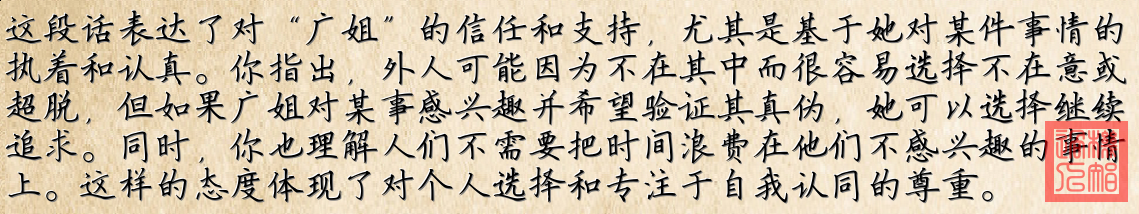 这段话表达了对“广姐”的信任和支持，尤其是基于她对某件事情的
执着和认真。你指出，外人可能因为不在其中而很容易选择不在意或
超脱，但如果广姐对某事感兴趣并希望验证其真伪，她可以选择继续
追求。同时，你也理解人们不需要把时间浪费在他们不感兴趣的事情
上。这样的态度体现了对个人选择和专注于自我认同的尊重。